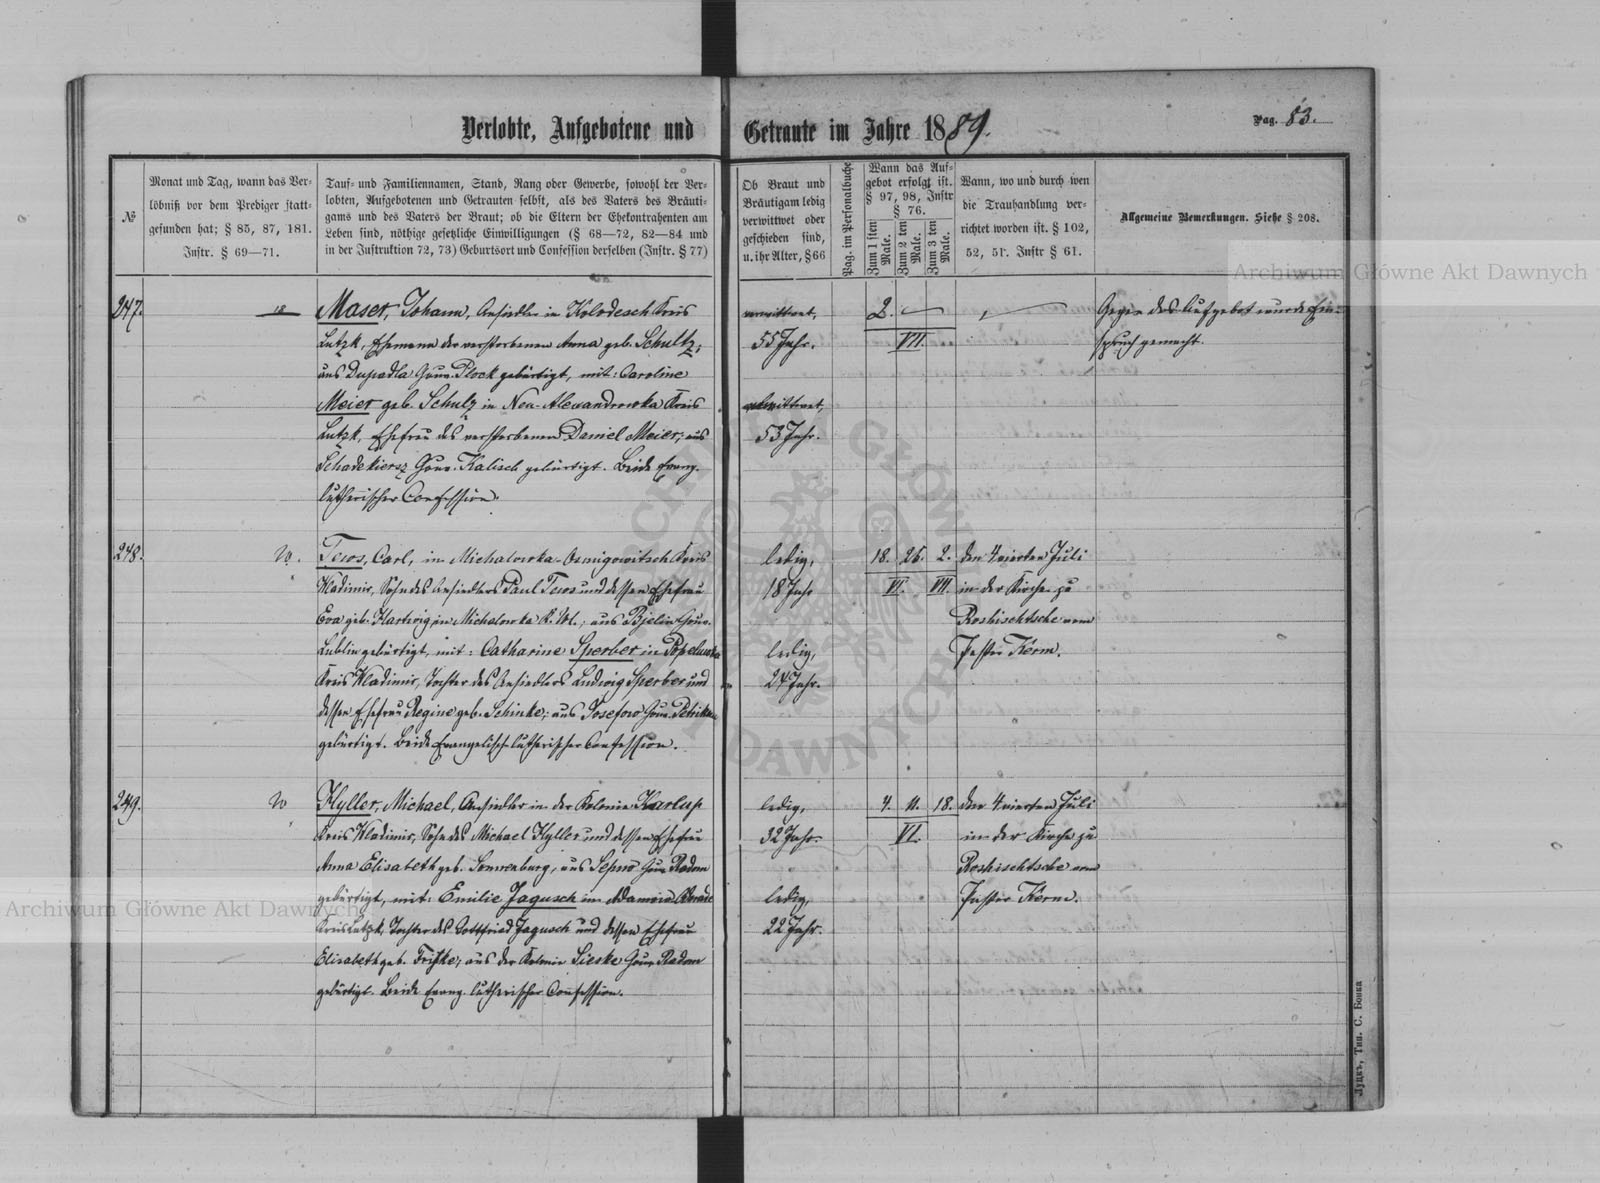 Verlobte, Aufgebotene und Getraute im Jahre 1889.
Pag. 83.
№
Monat und Tag, wann das Ver-
löbniß vor dem Prediger statt-
gefunden hat; § 85, 87, 181.
Instr. § 69—71.
Tauf- und Familiennamen, Stand, Rang oder Gewerbe, sowohl der Ver-
lobten, Aufgebotenen und Getrauten selbst, als des Vaters des Bräuti-
gams und des Vaters der Braut; ob die Eltern der Ehekontrahenten am
Leben sind, nöthige gesetzliche Einwilligungen (§ 68—72, 82—84 und
in der Instruktion 72, 73) Geburtsort und Confession derselben (Instr. § 77)
Ob Braut und
Bräutigam ledig
verwittwet oder
geschieden sind,
u. ihr Alter, § 66
Pag. im Personalbuche
Wann das Auf-
gebot erfolgt ist.
§ 97, 98, Instr
§ 76.
Zum 1 sten Male.
Zum 2 ten Male.
Zum 3 ten Male.
Wann, wo und durch wen
die Trauhandlung ver-
richtet worden ist. § 102,
52, 51. Instr § 61.
Allgemeine Bemerkungen. Siehe § 208.
247.
18
Maser, Johann, Ansiedler in Kolodesch Kreis
Lutzk, Ehemann der verstorbenen Anna geb. Schultz,
aus Dupadla Gouv. Plock gebürtigt, mit: Caroline
Meier geb. Schulz in Neu-Alexandrowka Kreis
Lutzk, Ehefrau des verstorbenen Daniel Meier, aus
Schadekiersz Gouv. Kalisch gebürtigt. Beide Evang.
lutherischer Confession.
verwittwet,
55 Jahr.
verwittwet,
53 Jahr.
2.
VII.
Gegen das Aufgebot wurde Ein-
spruch gemacht.
248.
Tews, Carl, in Michalowka-Osmigowitsch Kreis
Wladimir, Sohn des Ansiedlers Paul Tews und dessen Ehefrau
Eva geb. Hartwig in Michalowka K. Wl.; aus Bjelin Gouv.
Lublin gebürtigt, mit: Catharine Sperber in Popeluwka
Kreis Wladimir, Tochter des Ansiedlers Ludwig Sperber und
dessen Ehefrau Regine geb. Schinke; aus Josefow Gouv. Petrikau
gebürtigt. Beide Evangelisch-lutherischer Confession.
ledig,
18 Jahr
ledig,
24 Jahr.
18. 25. 2.
VI. VII.
den 4 vierten Juli
in der Kirche zu
Roshischtsche vom
Pastor Kerm.
249.
Hyller, Michael, Ansiedler in der Kolonie Karlup
Kreis Wladimir, Sohn des Michael Hyller und dessen Ehefrau
Anna Elisabeth geb. Sonnenburg, aus Sepno Gouv Radom
gebürtigt, mit: Emilie Jagusch in Adamow
Kreis Lutzk, Tochter des Gottfried Jagusch und dessen Ehefrau
Elisabeth geb. Friske; aus der Kolonie Sieske Gouv Radom
gebürtigt. Beide Evang. lutherischer Confession.
ledig,
32 Jahr.
ledig,
22 Jahr.
4. 11. 18.
VI.
den 4 vierten Juli
in der Kirche zu
Roshischtsche vom
Pastor Kerm.
Луцкъ, Тип. С. Бонка
Archiwum Główne Akt Dawnych
Archiwum Główne Akt Dawnych
ARCHIWUM GŁÓWNE AKT DAWNYCH